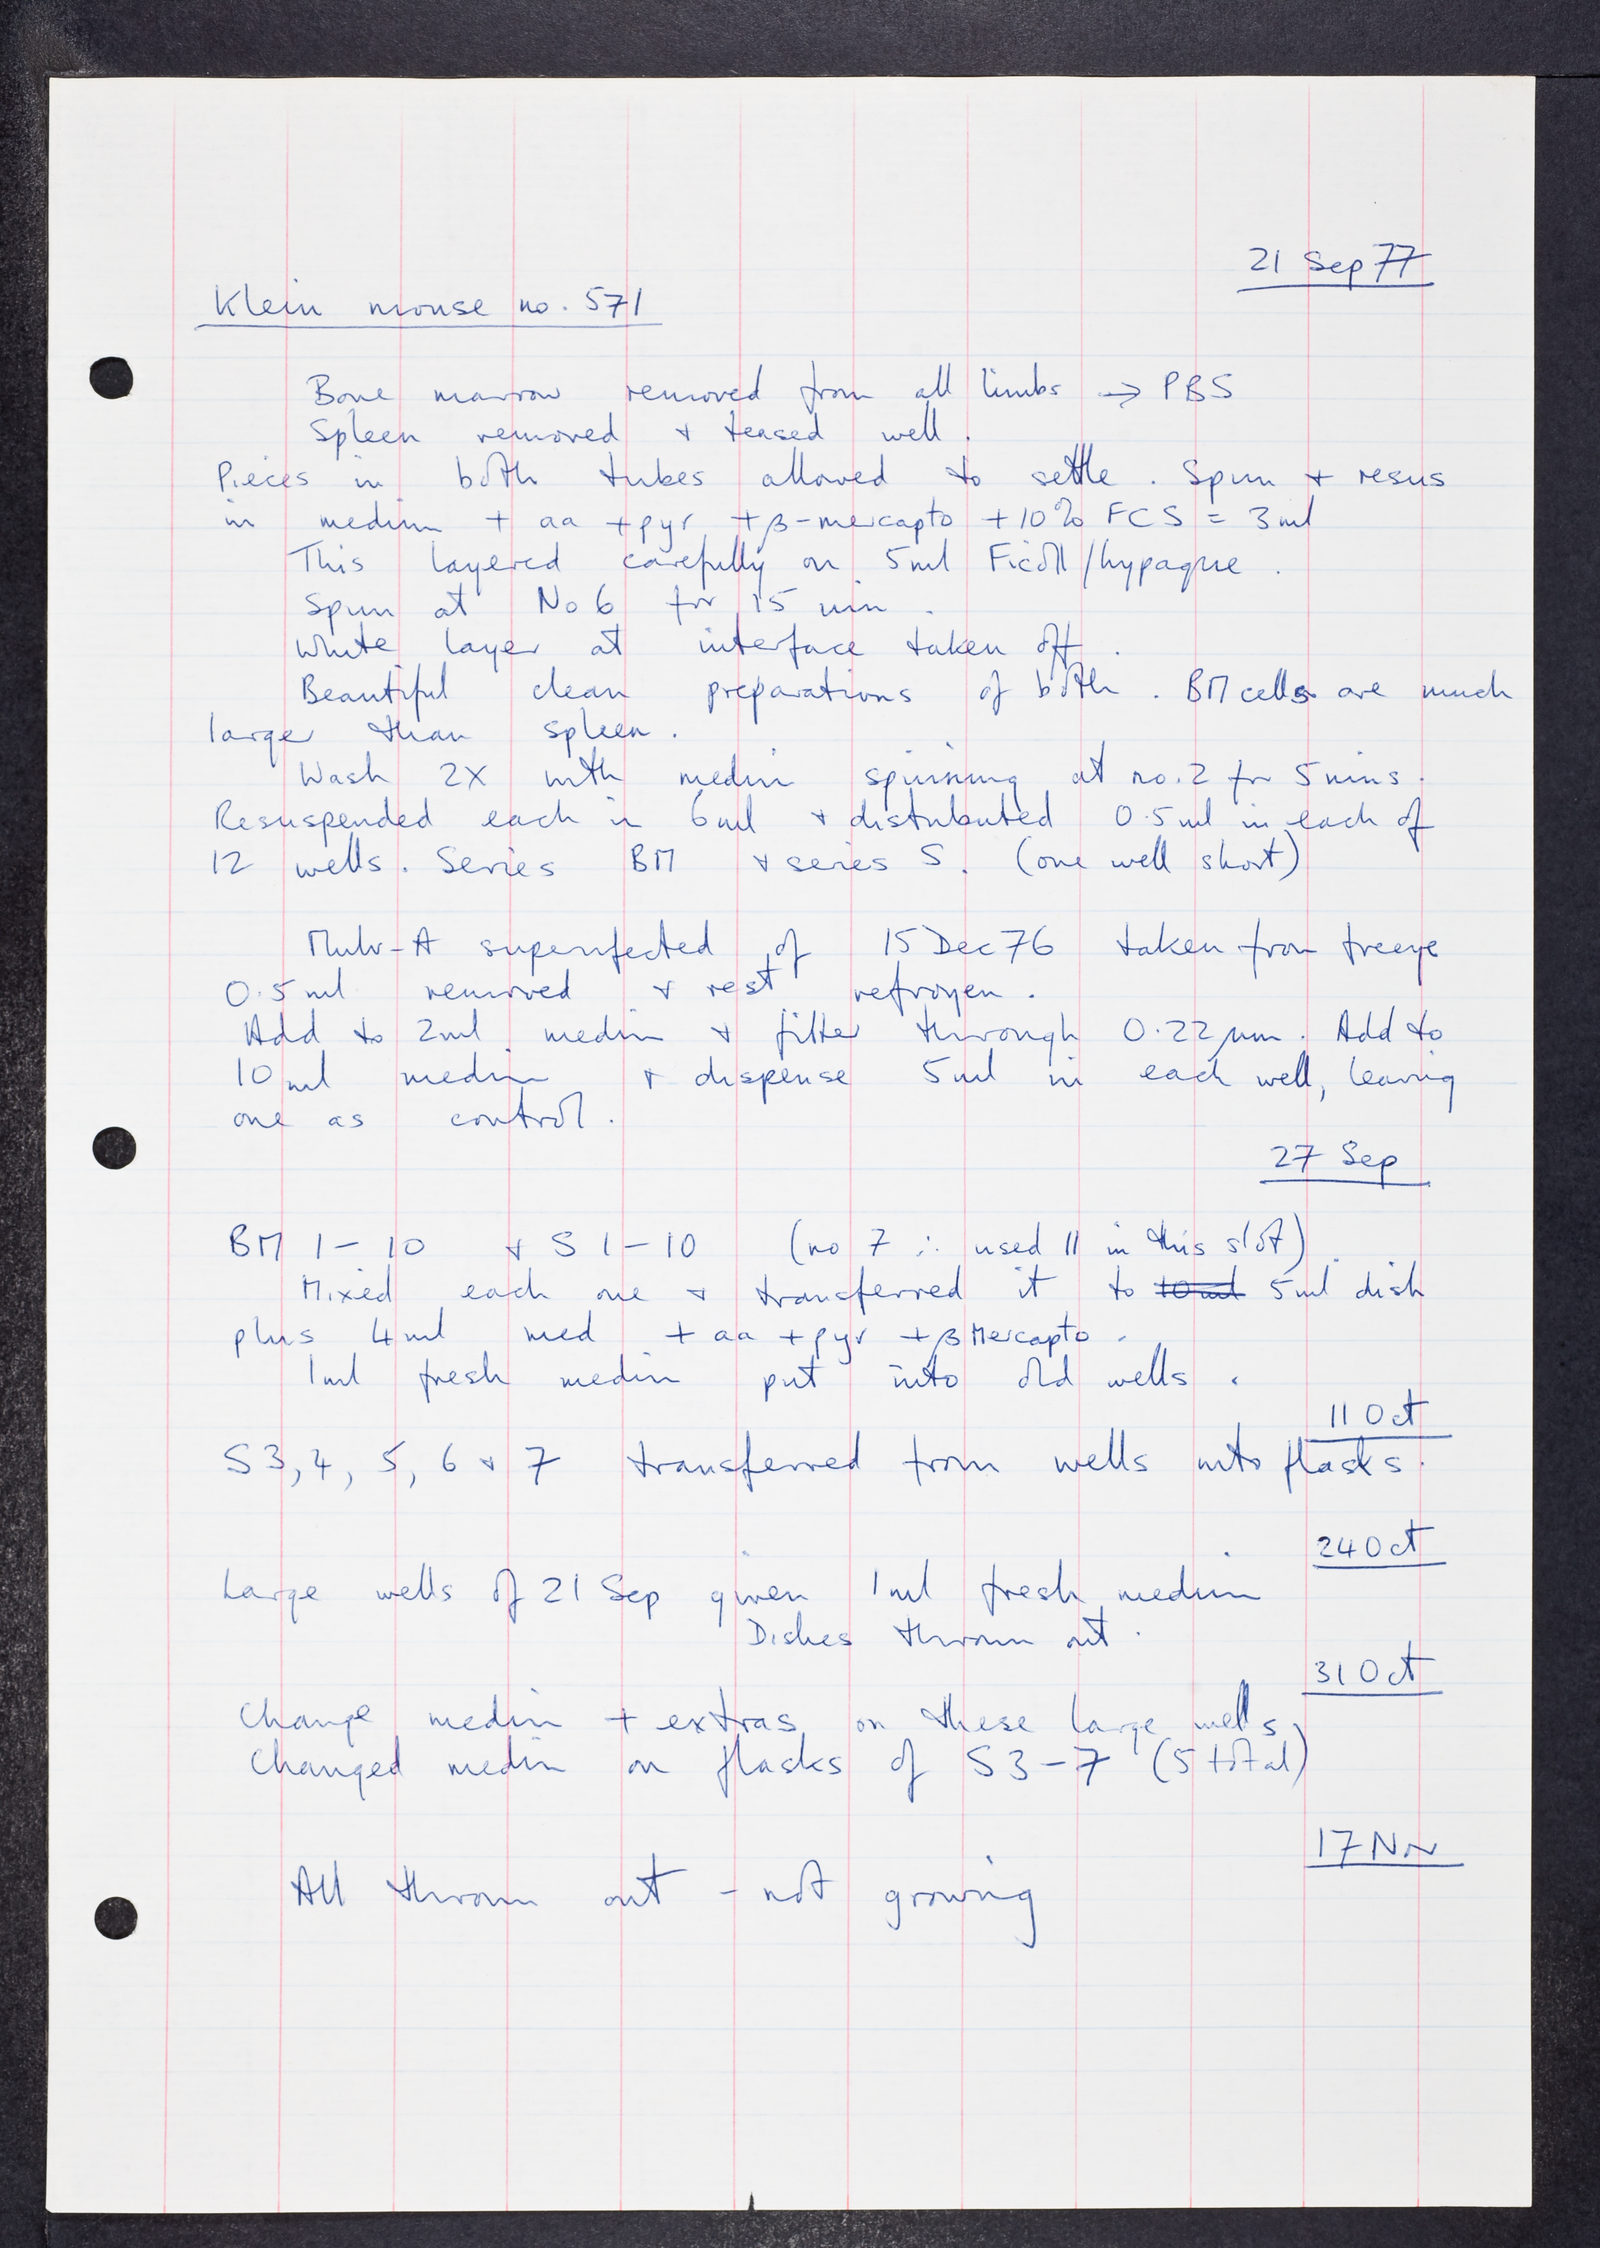 21 Sep 77
Klein mouse no. 571
Bone marrow removed from all limbs → PBS
Spleen removed + teased well.
Pieces in both tubes allowed to settle. Spun + resus
in medium + aa + pyr + β-mercapto + 10% FCS = 3ml
This layered carefully on 5ml Ficoll/hypaque.
Spun at No 6 for 15 min.
White layer at interface taken off.
Beautiful clean preparations of both. BM cells are much
larger than spleen.
Wash 2X with medium spinning at no. 2 for 5 mins.
Resuspended each in 6ml + distributed 0.5ml in each of
12 wells. Series BM + series S. (one well short)
Mulv-A superinfected of 15 Dec 76 taken from freeze
0.5ml removed + rest refrozen.
Add to 2ml medium + filter through 0.22µm. Add to
10ml medium + dispense 5ml in each well, leaving
one as control.
27 Sep
BM 1-10 + S 1-10 (no 7 ∴ used 11 in this slot)
Mixed each one + transferred it to 10ml 5ml dish
plus 4ml med + aa + pyr + β Mercapto.
1ml fresh medium put into old wells.
11 Oct
S 3, 4, 5, 6 + 7 transferred from wells into flasks.
24 Oct
Large wells of 21 Sep given 1ml fresh medium
Dishes thrown out.
31 Oct
Change medium + extras on these large wells
Changed medium on flasks of S 3-7 (5 total)
17 Nov
All thrown out - not growing